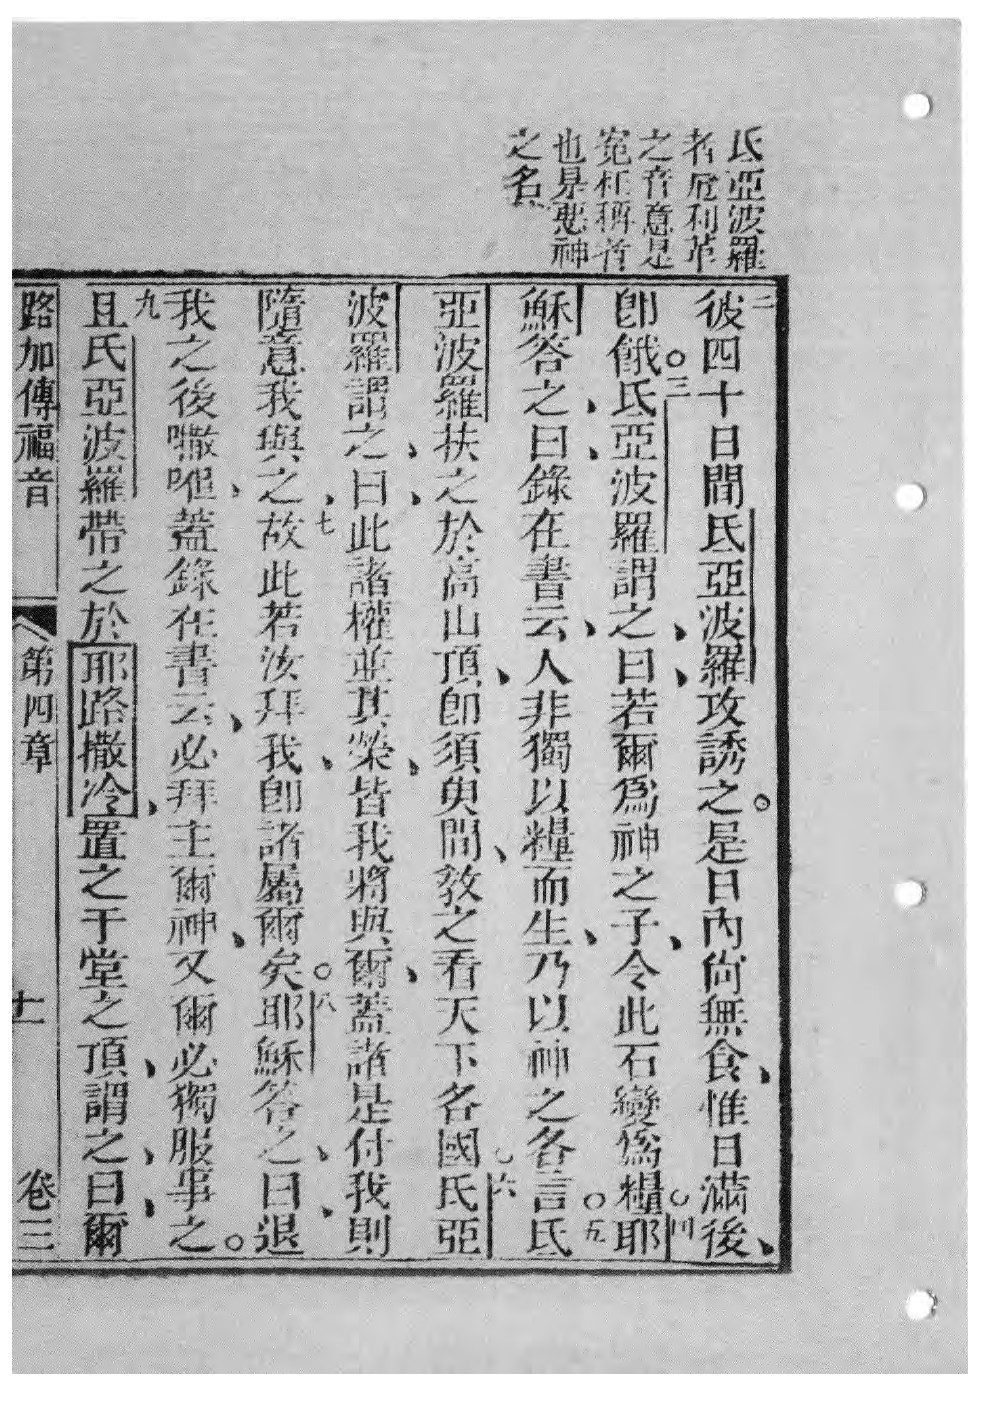 氐亞波羅
者厄利革
之音意是
寃枉稱者
也是惡神
之名
二彼四十日間氐亞波羅攻誘之。是日內尙無食、惟日滿後、
卽餓。三氐亞波羅謂之、曰、若爾爲神之子、令此石變爲糧。四耶
穌答之、曰、錄在書云、人非獨以糧而生、乃以神之各言。五氐
亞波羅扶之於高山頂、卽須臾間、敎之看天下各國。六氐亞
波羅謂之、曰、此諸權並其榮、皆我將與爾、蓋諸是付我則
隨意我與之、七故此若汝拜我、卽諸屬爾矣。八耶穌答之、曰、退
我之後𠹌呾、蓋錄在書云、必拜主爾神、又爾必獨服事之。
九且氐亞波羅帶之於耶路撒冷、置之于堂之頂、謂之、曰、爾
路加傳福音 第四章 十一 卷三